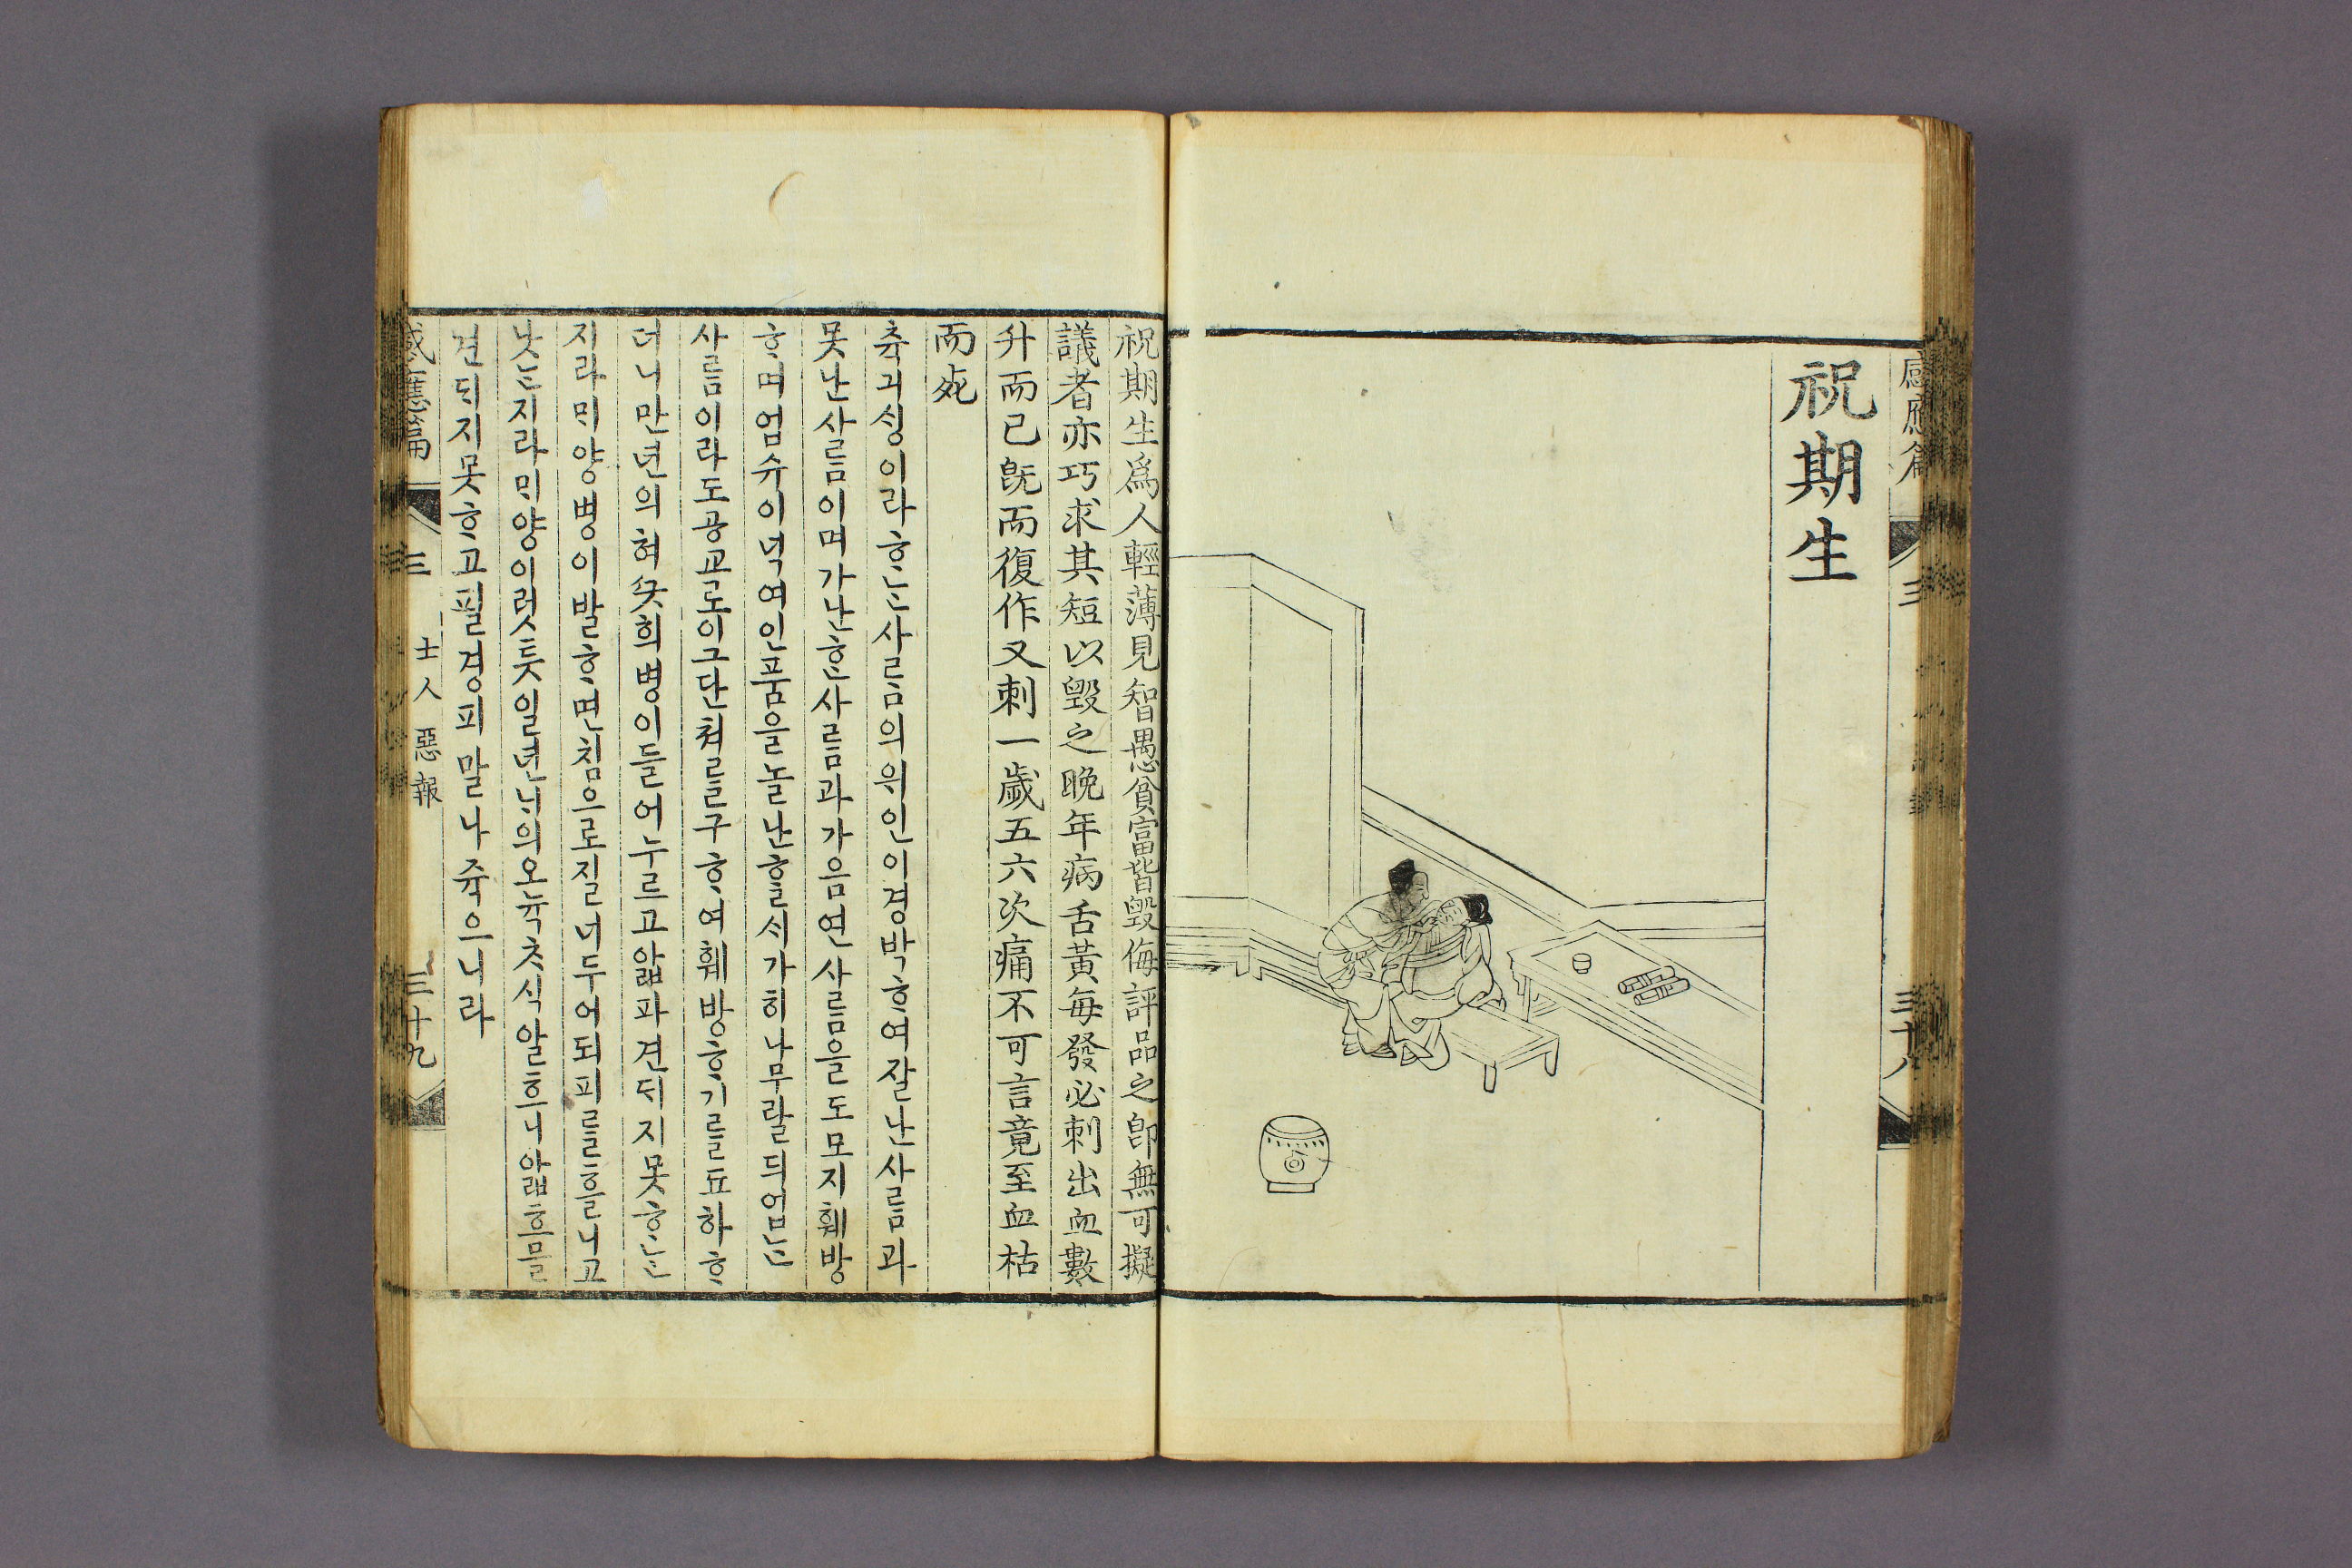 感應篇
三
三十八
祝期生
祝期生爲人輕薄見智愚貧富皆毁侮評品之卽無可擬
議者亦巧求其短以毁之晩年病舌黃每發必刺出血數
升而已旣而復作又刺一歲五六次痛不可言竟至血枯
而死
츅긔ᄉᆡᆼ이라ᄒᆞᄂᆞᆫ사ᄅᆞᆷ의위인이경박ᄒᆞ여잘난사ᄅᆞᆷ과
못난사ᄅᆞᆷ이며가난ᄒᆞᆫ사ᄅᆞᆷ과가음연사ᄅᆞᆷ을도모지훼방
ᄒᆞ며업슈이넉여인품을논난ᄒᆞᆯᄉᆡ가히나무랄ᄃᆡ업ᄂᆞᆫ
사ᄅᆞᆷ이라도공교로이그단쳐ᄅᆞᆯ구ᄒᆞ여훼방ᄒᆞ기ᄅᆞᆯ됴하ᄒᆞ
더니만년의혀ᄭᅳᆺ희병이들어누르고앏파견ᄃᆡ지못ᄒᆞᄂᆞᆫ
지라ᄆᆡ양병이발ᄒᆞ면침으로질너두어되피ᄅᆞᆯ흘니고
낫ᄂᆞᆫ지라ᄆᆡ양이럿틋일년ᄂᆡ의오뉵ᄎᆞ식알흐니앏흐믈
견ᄃᆡ지못ᄒᆞ고필경피말나쥭으니라
感應篇
三
士人惡報
三十九